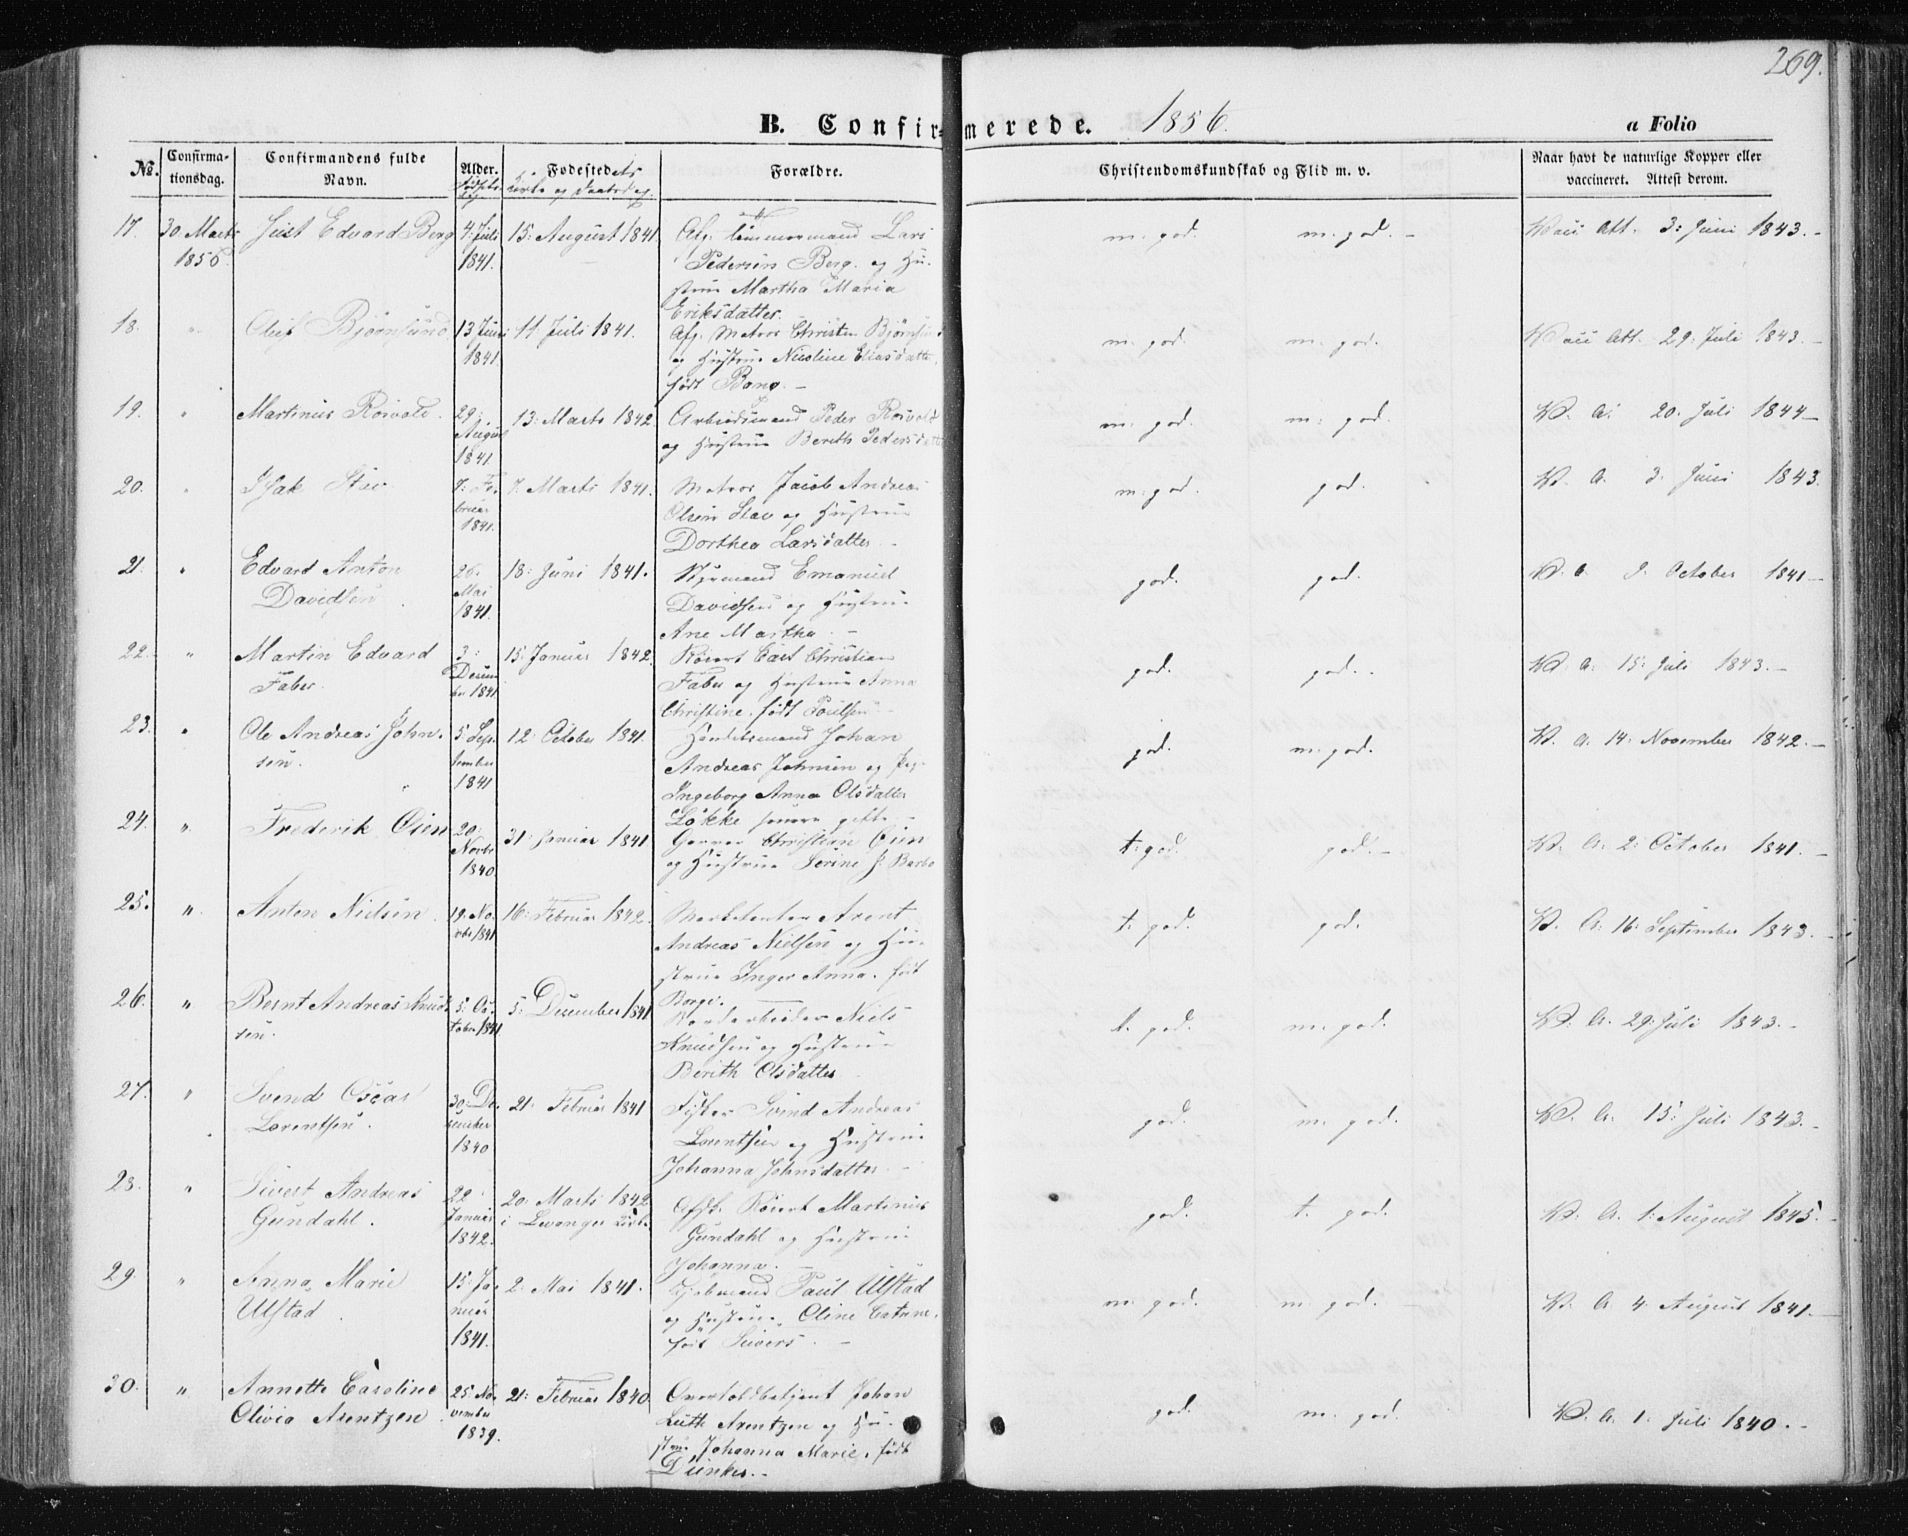 269.
B. Confirmerede. 1856.
a Folio
No.
Confirmationsdag.
Confirmandens fulde Navn.
Alder.
Fødestedets
Forældre.
Christendomskundskab og Flid m. v.
Naar havt de naturlige Kopper eller vaccineret. Attest derom.
17. 30. Marts 1856. Edvard Berg 4: Juli 1841. 15: August 1841. Afg. Tømmermand Lars
Pedersen Berg. og Hustrue Martha Maria
Eriksdatter.
m. god. m. god. - Att. 3: Juni 1843. -
18. " Oluf Bjørnsund 13 Juni 1841 11 Juli 1841. Afg. Matros Christen
og Hustrue Nicoline Eliasdatter
født Bang. -
m. god. m. god. Att. 29: Juli 1843. -
19. " Martinus 29: August 1841. 13: Marts 1842 Arbeidsmand Peder
og Hustrue Berith Pedersdatter
m. god. m. god. V. A. 20. Juli 1844 -
20. " Isak Stav 7: Februar 1841. 7. Marts 1841. Matros Jacob Andreas
Olsen Stav og Hustrue
Dorthea Larsdatter. -
m. god. god. V. A. 3. Juni 1843.
21. " Edvard Anton
Davidsen 26. Mai 1841. 18: Juni 1841. Styrmand Emanuel
Davidsen og Hustrue
Ane Martha. -
god. god. V. A. 9. October 1841 -
22. " Martin Edvard
Faber. 3: December 1841 15: Januar 1842. Carl Christian
Faber og Hustrue Anna
Christine. født Poulsen -
god. god. - V. A. 15: Juli 1843. -
23. " Ole Andreas Johnsen. 5: September 1841 12: October 1841. Handelsmand Johan
Andreas Johnsen og Pige
Ingeborg Anna Olsdatter
Løkke senere gifte. -
god. m. god. V. A. 14: November 1842. -
24. " Frederik Øien 20: Novbr 1840. 31: Januar 1841 Garver Christian Øien
og Hustrue Serine
t. god. god. - V. A. 2: October 1841. -
25. " Anton Nielsen. 19. Novbr 1841 16: Februar 1842. Marketenter Arent
Andreas Nielsen og Hustrue Inger Anna. født
Borge.
t. god. god. V. A. 16: September 1843. -
26. " Bernt Andreas Knudsen. 5: October 1841 5: December 1841 Niels
Knudsen og Hustrue
Berith Olsdatter
t. god. m. god. V. A. 29: Juli 1843. -
27. " Svend Oscar
Lorentsen. 30: December 1840 21: Februar 1841 Fisker Svend Andreas
Lorentsen og Hustrue
Johanna Johnsdatter. -
god. m. god. V. A. 15: Juli 1843. -
28. " Sivert Andreas
Gundahl. 22 Januar 1842. 20: Marts 1842
i Levanger Kirke Afsk. Martinus
Gundahl og Hustrue
Johanna. -
god. t. god. V. A. 1: August 1845. -
29. " Anna Marie
Ulstad. 15: Januar 1841. 2: Mai 1841. Paul Ulstad
og Hustrue Oline
født Sivers. -
m. god. m. god. - V. A. 4: August 1841. -
30. " Annette Caroline
Olivia Arentzen. 25: November 1839. 21: Februar 1840. Overtoldbetjent Johan
Arentzen og Hustrue Johanna Marie, født
Duncker. -
god. m. god. V. A. 1. Juli 1840. -